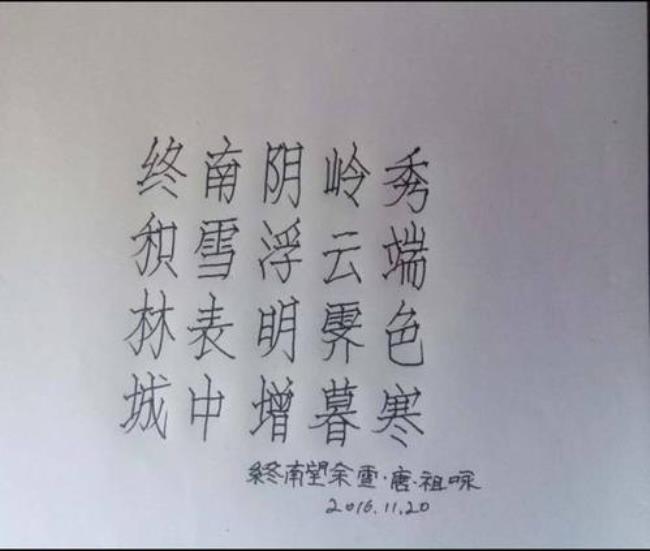 终南阴岭秀
积雪浮云端
林表明霁色
城中增暮寒
終南望余雪·唐·祖咏
2016.11.20